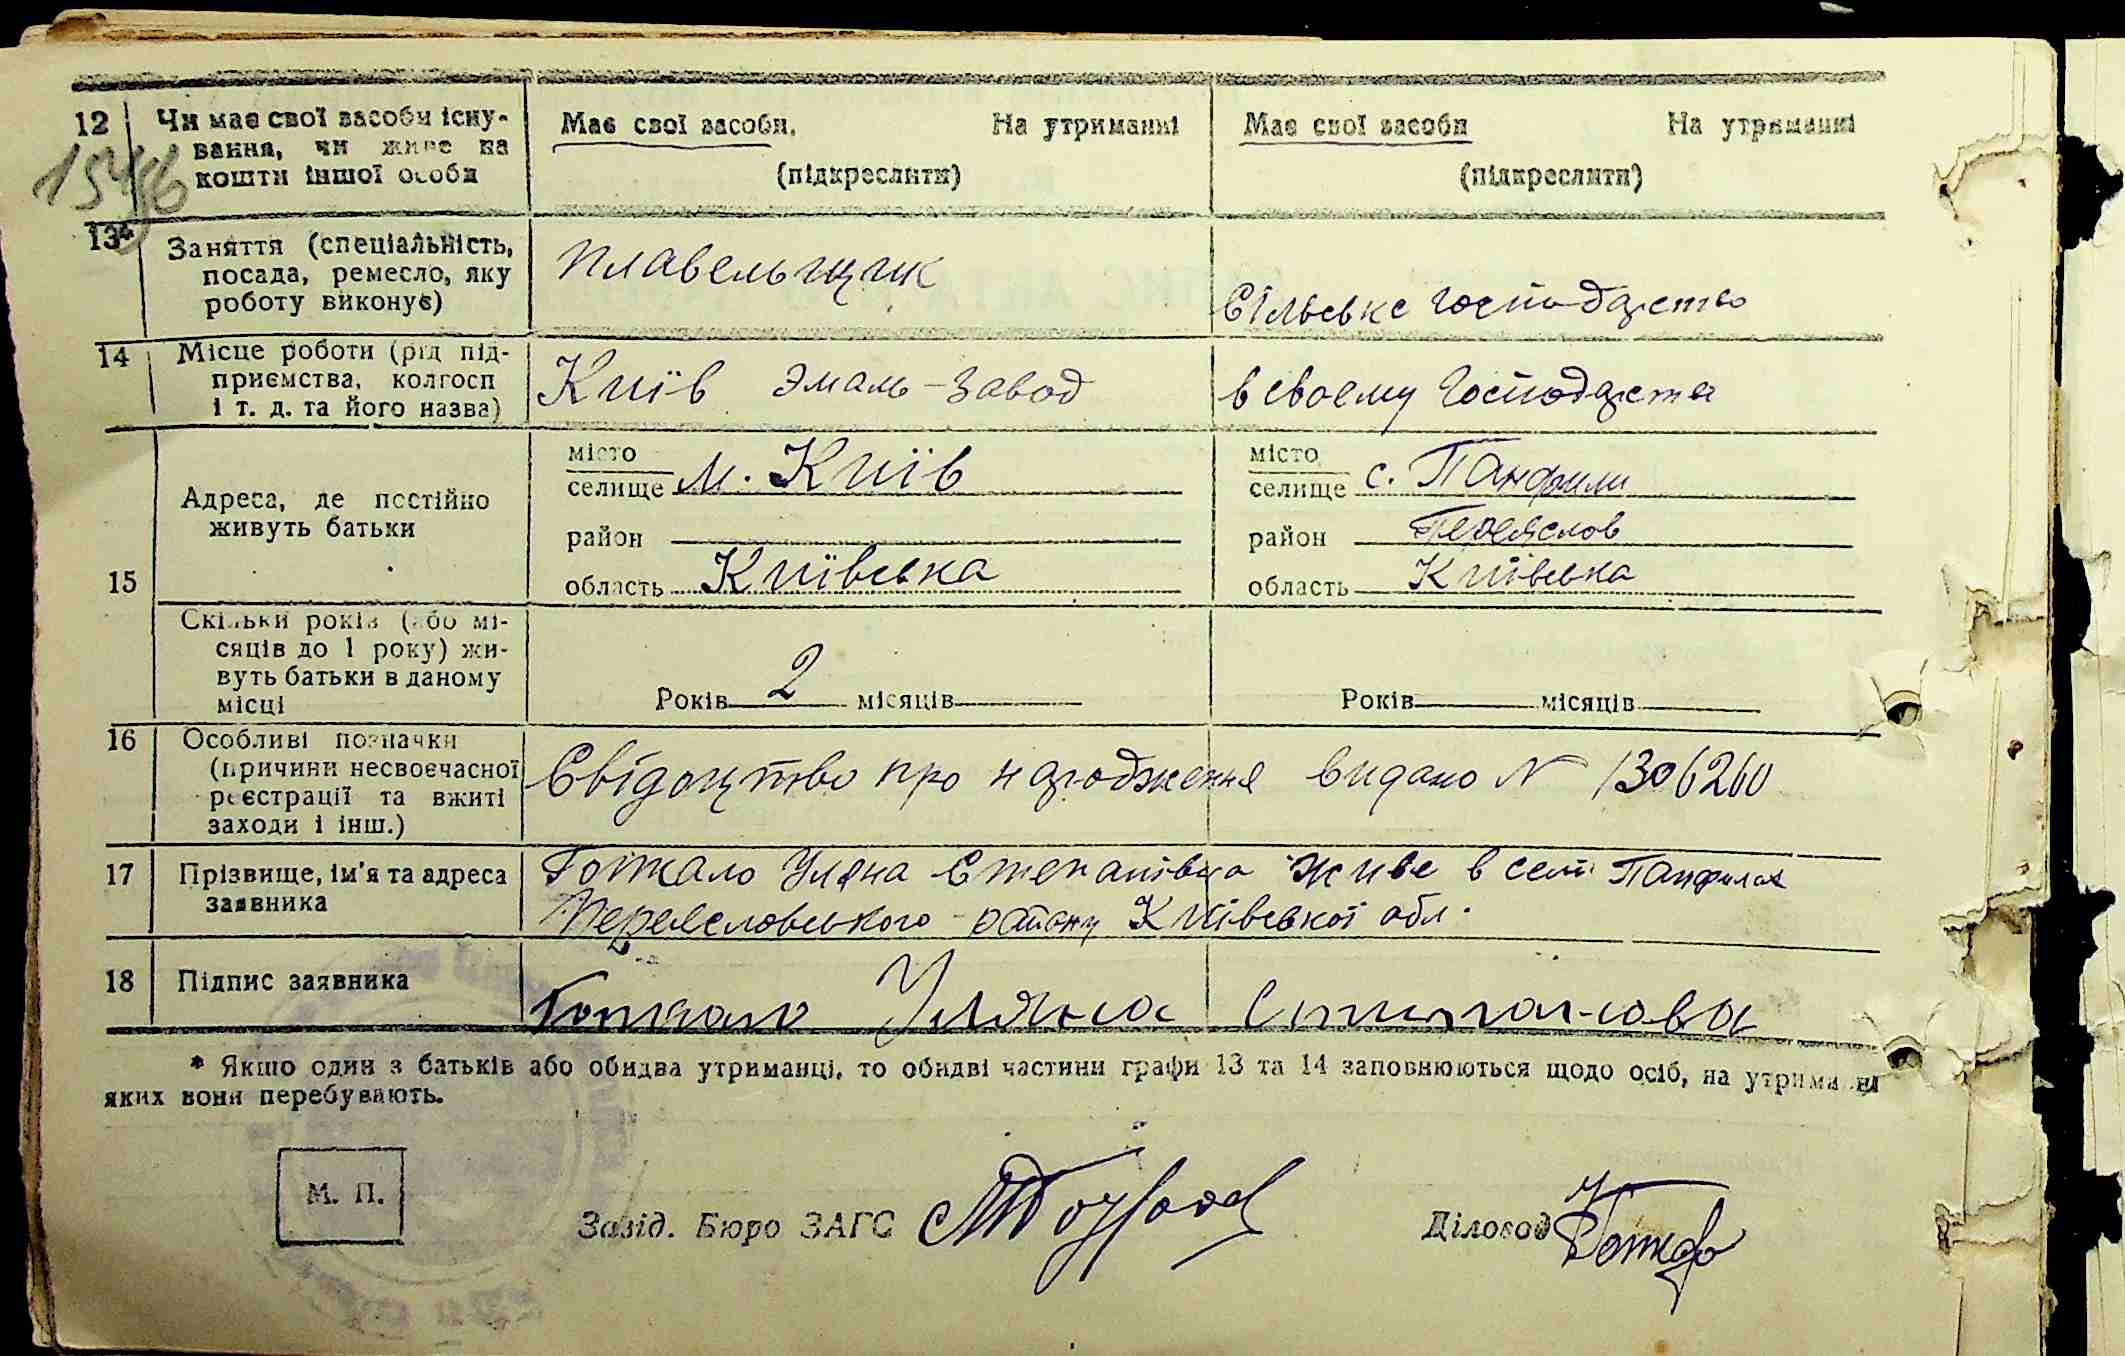 12 Чи має свої засоби існу- Має свої засоби, На утриманні Має свої засоби На утриманні
вання, чи живе на
кошти іншої особи (підкреслити) (підкреслити)
13* Заняття (спеціальність, плавельщик
посада, ремесло, яку
роботу виконує) Сільське господарство
14 Місце роботи (рід під- Київ эмаль-завод в своєму господарстві
приємства, колгосп
і т. д. та його назва)
15 Адреса, де постійно живуть батьки
місто селище м. Київ місто селище с. Панфили
район район Переяслов
область Київська область Київська
Скільки років (або мі-
сяців до 1 року) жи-
вуть батьки в даному
місці Років 2 місяців Років місяців
16 Особливі позначки
(причини несвоєчасної Свідоцтво про народження видано № 1306260
реєстрації та вжиті
заходи і інш.)
17 Прізвище, ім'я та адреса Уляна Степанівна живе в селі Панфилах
заявника Переясловського району Київської обл.
18 Підпис заявника Уляна
* Якщо один з батьків або обидва утриманці, то обидві частини графи 13 та 14 заповнюються щодо осіб, на утриманні
яких вони перебувають.
М. П.
Завід. Бюро ЗАГС Діловод